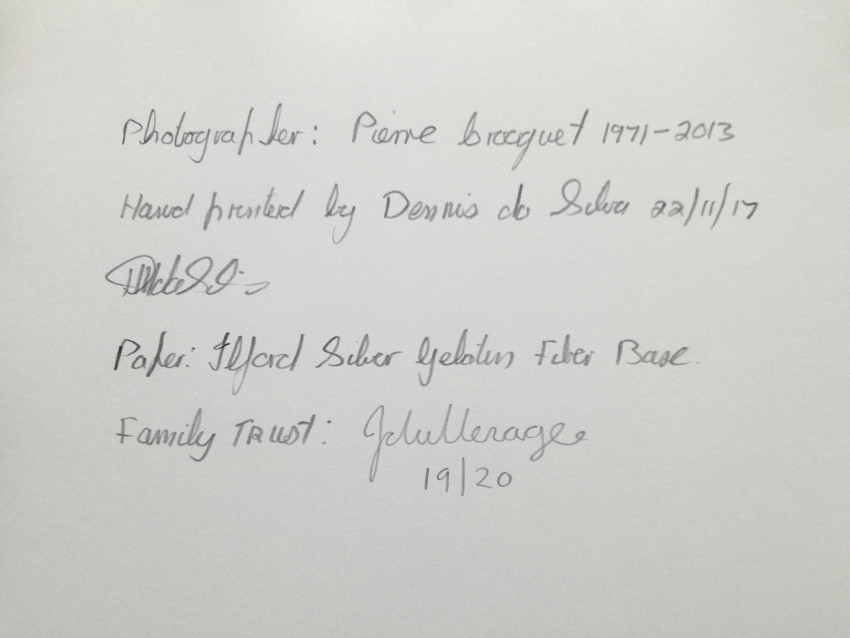 Photographer: Pierre Crocquet 1971-2013
Hand printed by Dennis da Silva 22/11/17
Paper: Ilford Silver Gelatin Fiber Base.
Family TRUST:
19/20